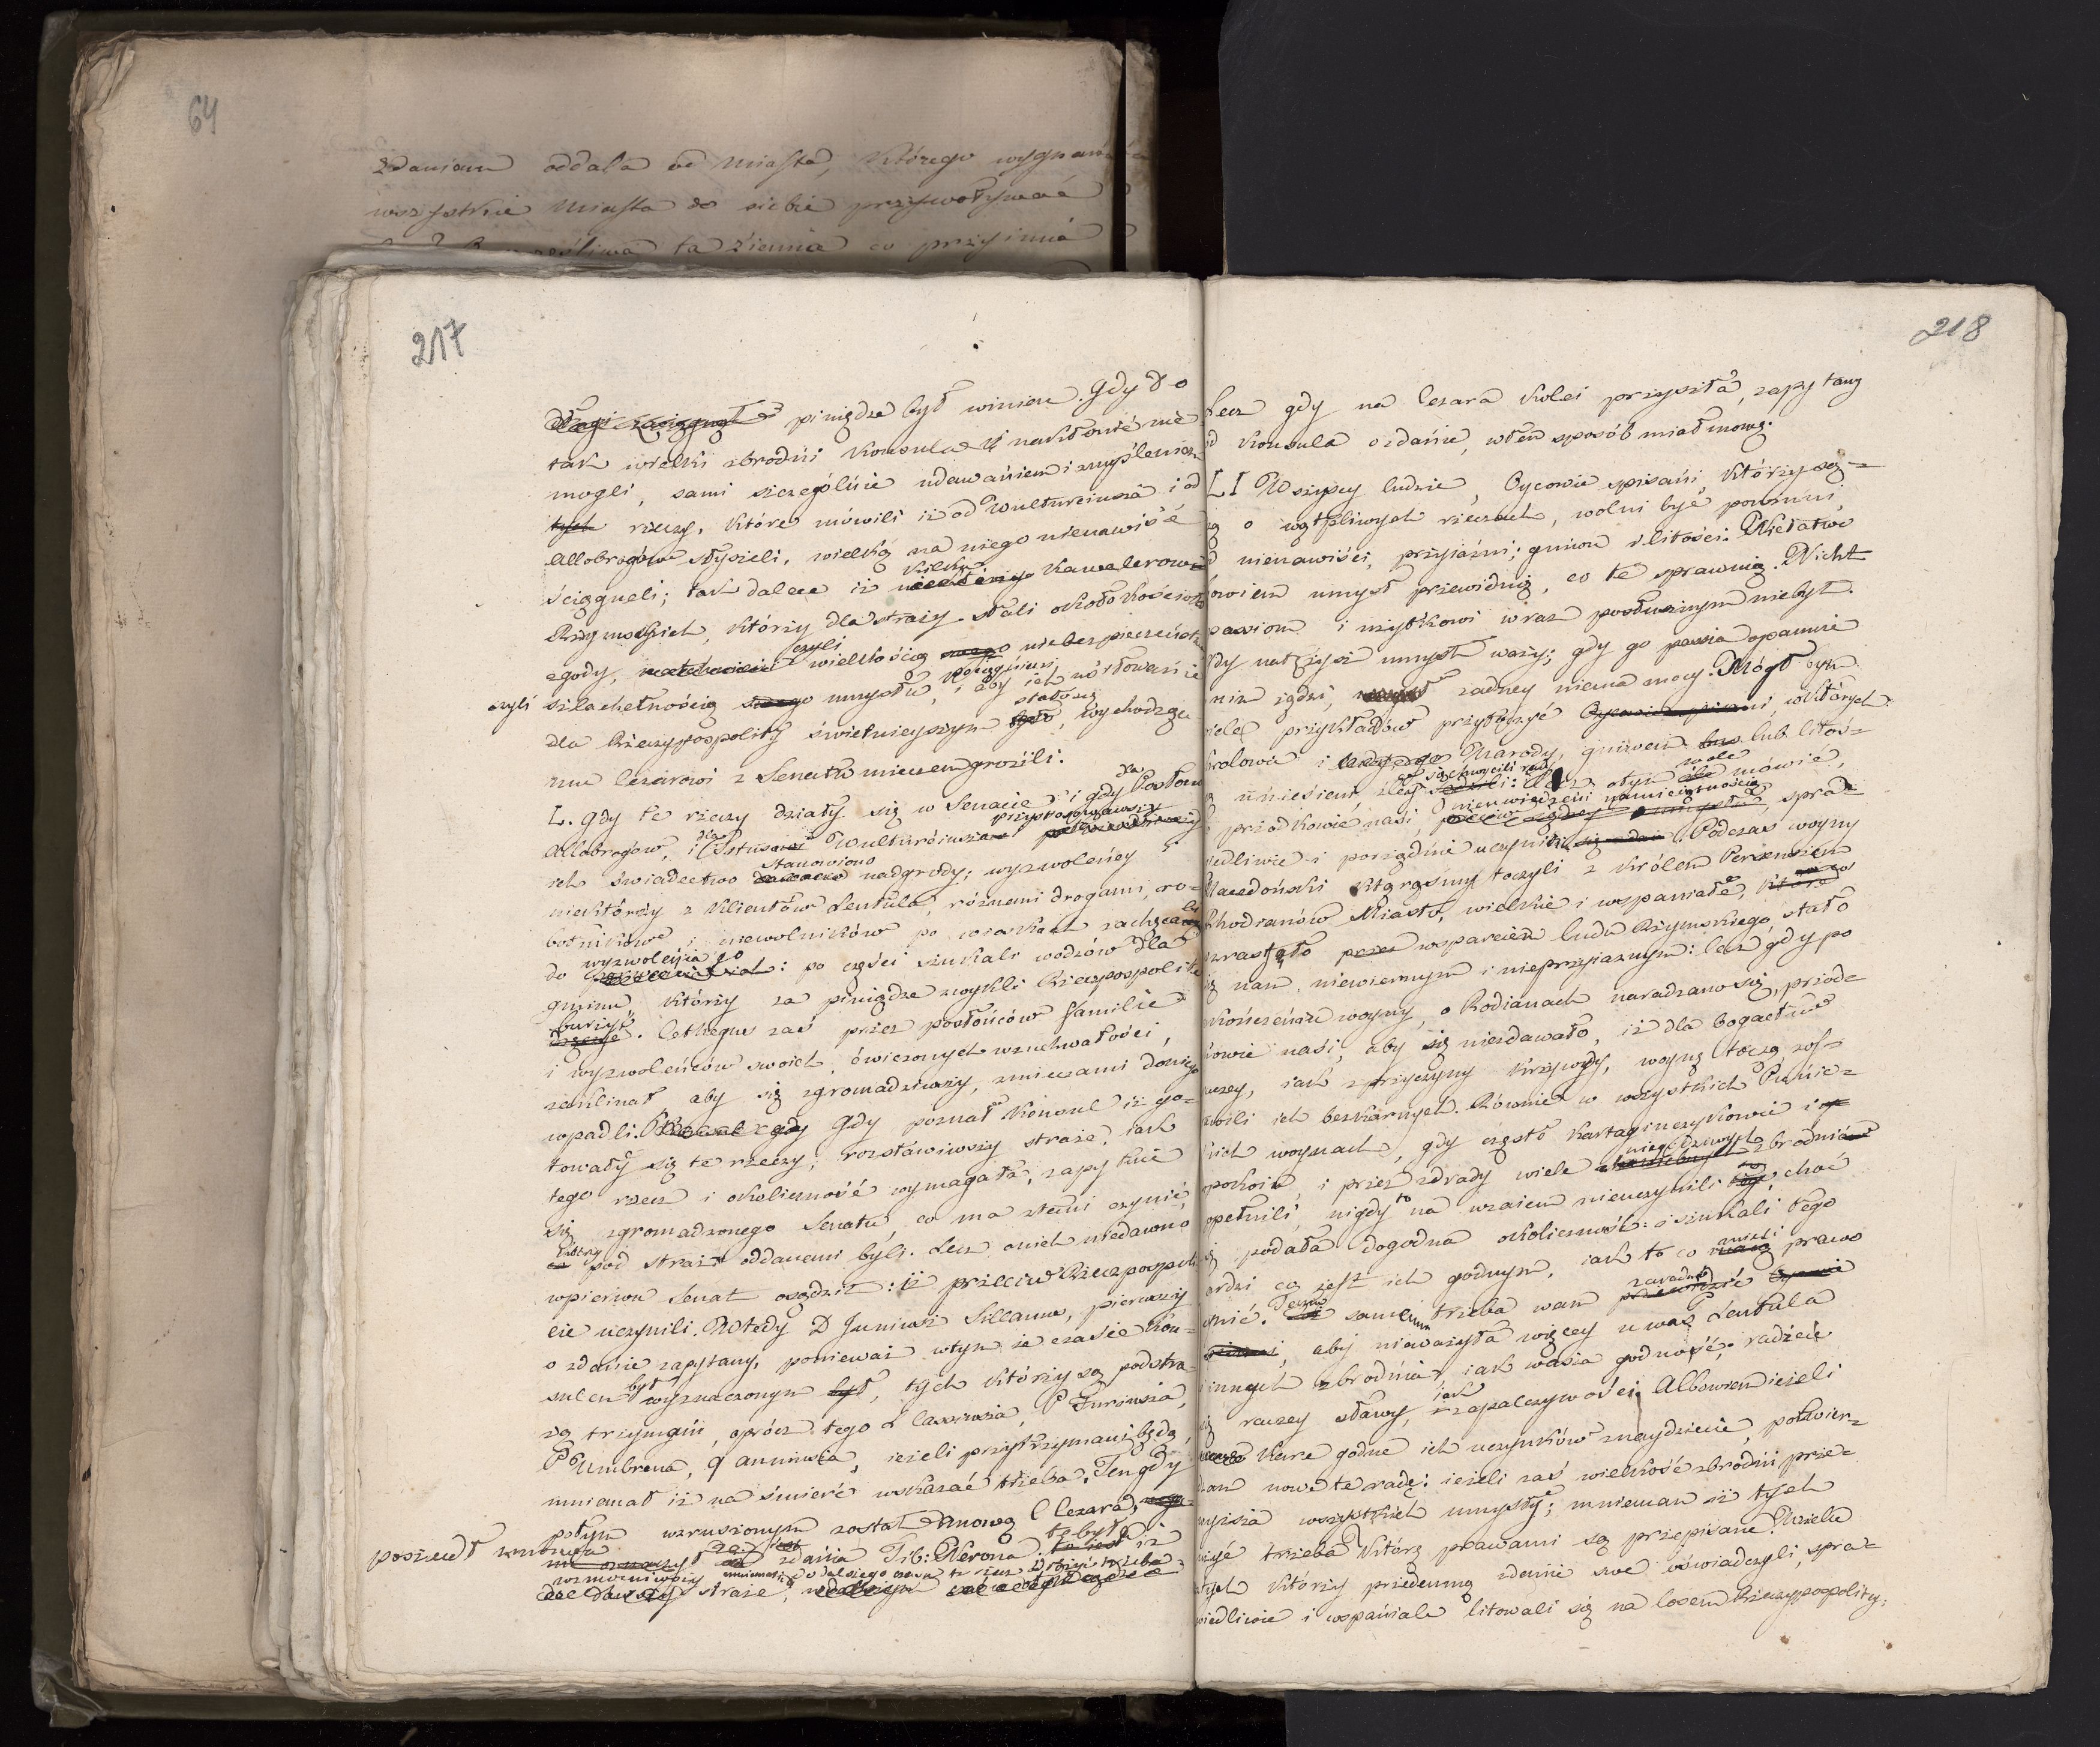 64
zdaniem oddala od Miasta, którego wygnańca
wszystkie Miasta do siebie przyzwoływać
ta ziemia co przyimuie
217
długi zaciągnął pieniądze był winien. Gdy do
tak wielki zbrodni Konsula nakłonić nie
mogli, sami szczególnie udawaniem i zmyśleniem
tych rzeczy, które mówili iż od Wulturciusza i od
Allobrogów słyszeli, wielką na niego nienawiść
kilku
ściągneli; tak dalece iż niektórzy Kawalerowie
Rzymskich, którzy dla straży stali około Kościoła
zgody, czyli wielkością swego niebezpieczeństwa
czyli szlachetnością swego umysłu, i aby ich usiłowanie
dla Rzeczypospolity świetnieyszym stało się, wychodzące
mu Cezarowi z Senatu mieczem grozili.
L. Gdy te rzeczy działy się w Senacie i gdy dla Posłów
Allobrogów, i dla Tytusa Wulturciusza
ich świadectwo stanowiono nadgrody; wyzwoleńcy i
niektórzy z klientów Lentula, róznemi drogami, ro-
botników i niewolników po wioskach zachęcali
do wyzwolenia go: po części szukali wodzów dla
gminu, którzy za pieniądze zwykli Rzeczpospolitę
burzyć. Cethegus zaś przez posłońców familie
i wyzwoleńców swoich, ćwiczonych w zuchwałości,
zaklinał aby się zgromadziwszy, z mieczami do niego
wpadli. Gdy poznał Konsul iż go-
towały się te rzeczy; rozstawiwszy straże, iak
tego rzecz i okoliczność wymagała, zapytuie
się zgromadzonego Senatu, co ma z temi czynić,
którzy pod straż oddanemi byli. Lecz o nich niedawno
wpierw Senat osądził: iż przeciw Rzeczypospoli
cie uczynili. Wtedy D Juniusz Sillanus, pierwszy
o zdanie zapytany, ponieważ w tym że czasie Kon-
sulem był wyznaczonym był, tych którzy są pod stra-
żą trzymani, oprócz tego L Cassiusza, P Furiusza,
P Umbrena, Q Anniusza, ieżeli przytrzymani będą,
mniemał iż na śmierć wskazać trzeba. Ten gdy
potym wzruszonym został mową C Cezara,
poszedł zdania Tib: Nerona
wzmocniwszy straże,
218
Lecz gdy na Cezara kolei przyszła, zapytany
od Konsula o zdanie, w ten sposób miał mowę.
LI Wszyscy ludzie, Oycowie spisani którzy są-
dzą o wątpliwych rzeczach, wolni być powinni
od nienawiści, przyiaźni, gniewu i litości. Nie łatwo
bowiem umysł przewidnie, co te sprawuią. Nicht
passiom i użytkowi wraz posłusznym nie był.
Gdy natężysz umysł waży; gdy go passia opanuie
nim rządzi, umysł żadney niema mocy. Mógł bym
wiele przykładów przytoczyć Oycowie spisani, w których
Królowie i Narody, gniwem lub litoś-
cią uniesieni, źle się chwycili rady: Lecz o tym wolę mówić,
co przodkowie nasi, nieuwiedzeni namiętnością spra-
wiedliwie i porządnie uczynili. Podczas woyny
Macedońskiy którąśmy toczyli z Królem Perseuszem
Rhodianów Miasto, wielkie i wspaniałe, które
wzrastało przez wsparciem ludu Rzymskiego, stało
się nam niewiernym i nieprzyiaznym: lecz gdy po
skończeniu woyny, o Rodianach naradzano się, przod-
kowie nasi, aby się niezdawało, iż dla bogactw
raczey, iak z przyczyny krzywdy, woynę toczą, zos-
tawili ich bezkarnych. Również w wszystkich Punic-
kich woynach, gdy często Kartagińczykowie i w
spokoiu, i przez zdrady wiele niegodziwych zbrodni
popełnili, nigdy to na wzaiem nieuczynili, choć
się podała dogodna okoliczność: szukali tego
bardzi co iest ich godnym, iak to co mieli prawo
czynić. Teraz samym trzeba wam zaradzić
aby nieważyła więcey u was Lentula
i innych zbrodnia, iak wasza godność; radźcie
się raczey sławy, iak zapalczywości. Albowiem ieżeli
karę godne ich uczynków znaydziecie, potwier-
dzam nowe te radę: ieżeli zaś wielkość zbrodni prze-
wyższa wszystkich umysły; mniemam iż tych
użyć trzeba które prawami są przepisane. Wielu
z tych którzy przedemną zdanie swe oświadczyli, spra-
wiedliwie i wspaniale litowali się na losem Rzeczypospolity: